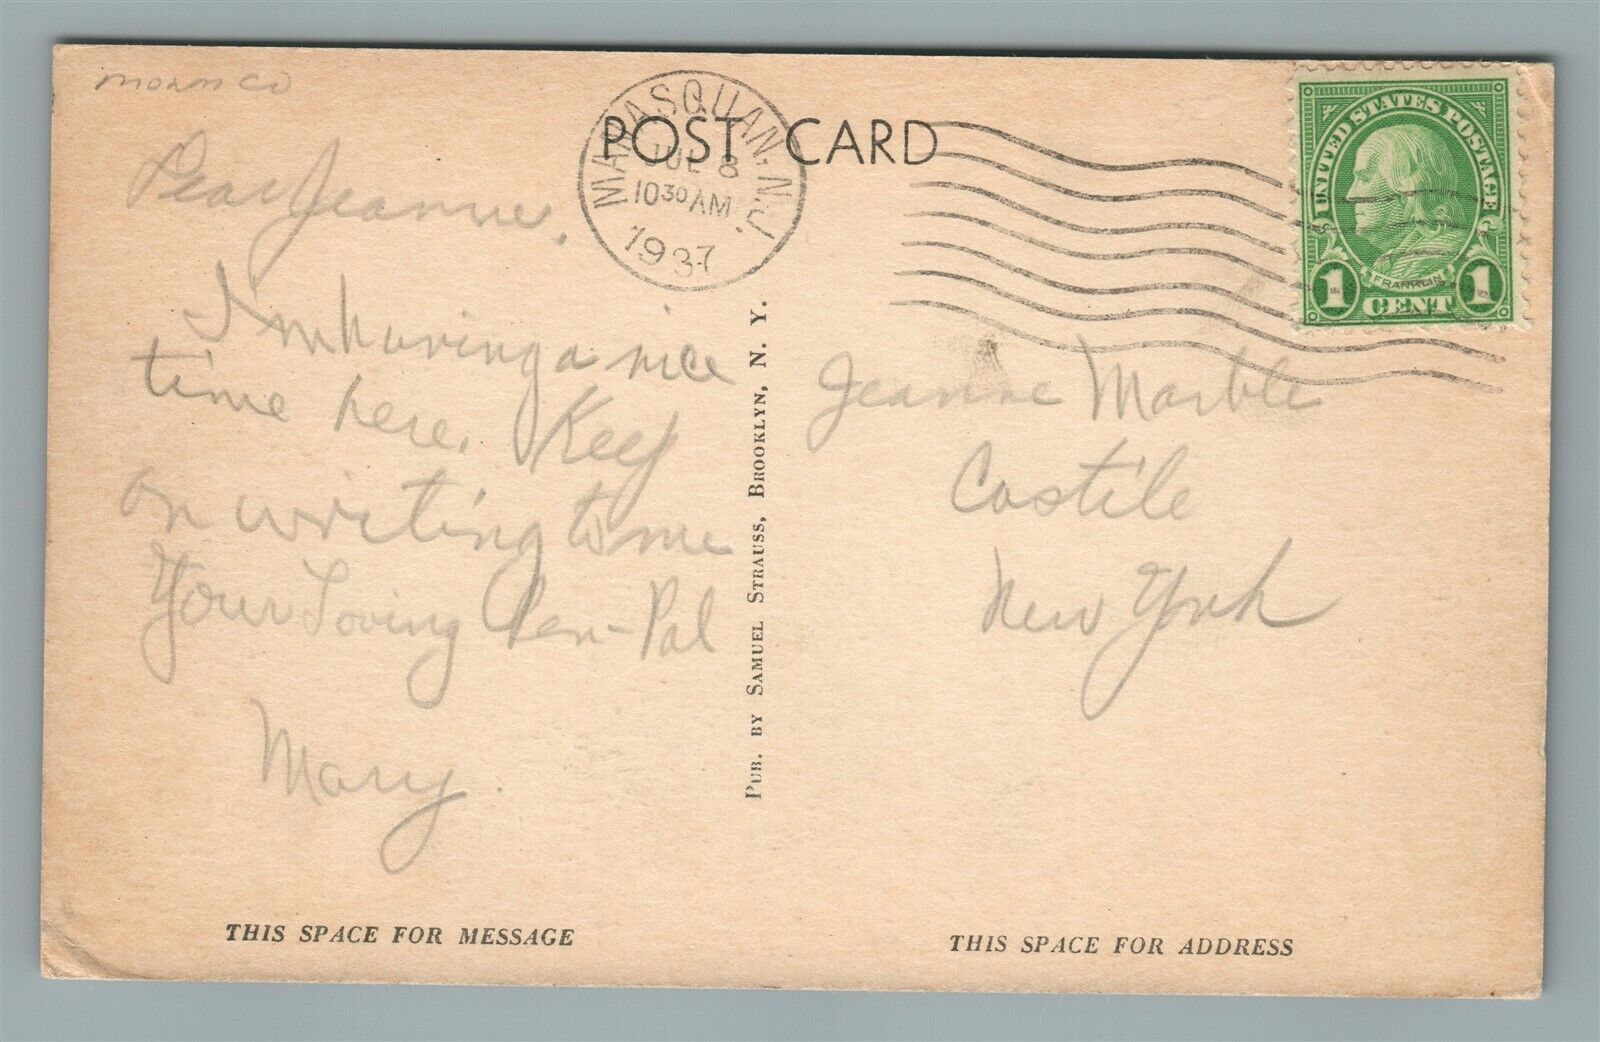 monm co
POST CARD
MANASQUAN, N.J.
JUL 8
10 30 AM
1937
UNITED STATES POSTAGE
FRANKLIN
1 CENT 1
Dear Jeanne,
I'm having a nice
time here. Keep
on writing to me
Your Loving Pen-Pal
Mary.
PUB. BY SAMUEL STRAUSS, BROOKLYN, N. Y.
Jeanne Marble
Castile
New York
THIS SPACE FOR MESSAGE
THIS SPACE FOR ADDRESS